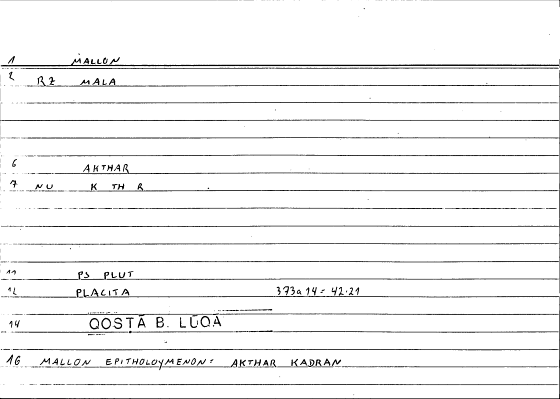 1 MALLON
2 RZ MALA
6 AKTHAR
7 NU K TH R
11 PS PLUT
12 PLACITA 373a14 = 42.21
14 QOSTĀ B. LŪQĀ
16 MALLON EPITHOLOYMENON: AKTHAR KADRAN